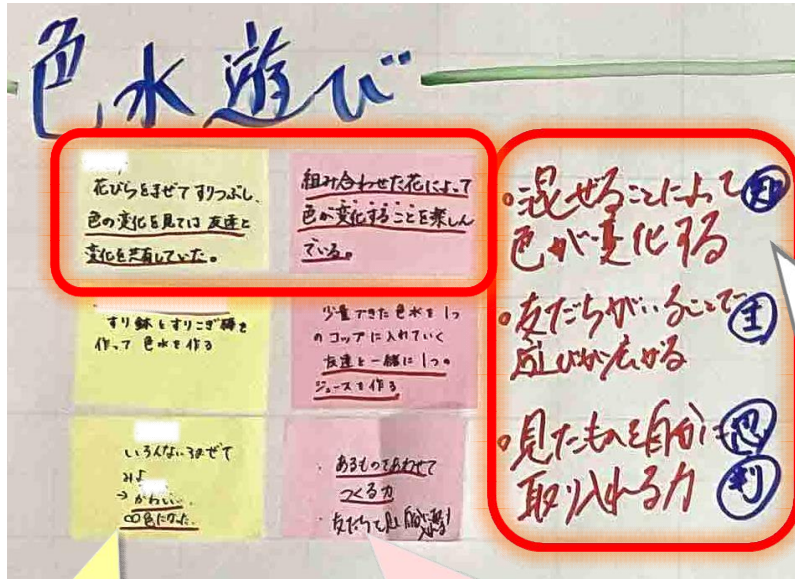 色水遊び
花びらをまぜてすりつぶし、
色の変化を見ては友達と
変化を共有していた。
組み合わせた花によって
色が変化することを楽しん
でいる。
すり鉢とすりこぎ棒を
作って 色水を作る
少量できた色水を1つ
のコップに入れていく
友達と一緒に1つの
ジュースを作る
いろんないろまぜて
みよ
→かわいい、
色になった。
・あるものをあわせて
つくる力
・友だちと
・混ぜることによって 知
色が変化する
・友だちがいることで 主
遊びが広がる
・見たものを自分に 思
取り入れる力 判